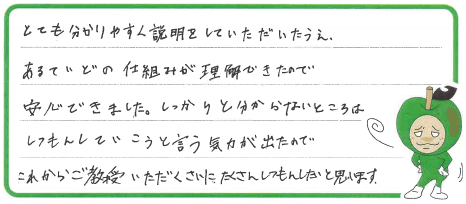 とても分かりやすく説明をしていただいたうえ、
あるていどの仕組みが理解できたので
安心できました。しっかりと分からないところは
しつもんしていこうと言う気力が出たので
これからご教授いただくさいにたくさんしつもんしたいと思います。